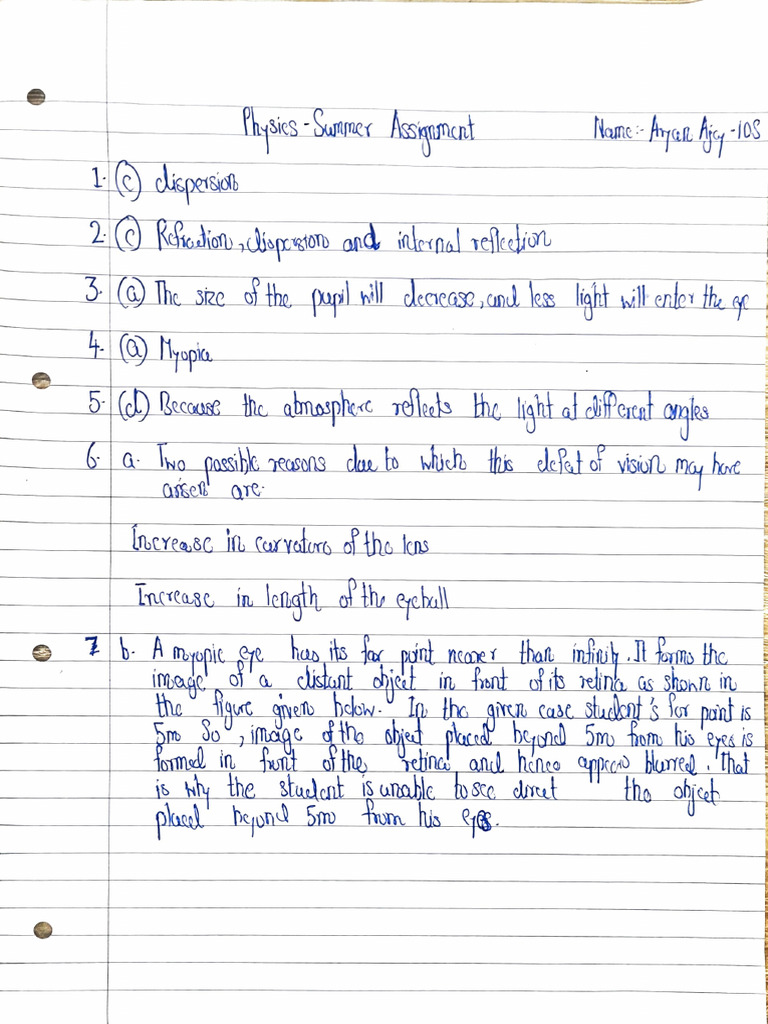 Physics - Summer Assignment Name:- Aryan Ajay -10S
1. (c) dispersion
2. (c) Refraction, dispersion and internal reflection
3. (a) The size of the pupil will decrease, and less light will enter the eye
4. (a) Myopia
5. (d) Because the atmosphere reflects the light at different angles
6. a. Two possible reasons due to which this defect of vision may have
arisen are.
Increase in curvature of the lens
Increase in length of the eyeball
7 b. A myopic eye has its far point nearer than infinity. It forms the
image of a distant object in front of its retina as shown in
the figure given below. In the given case student's far point is
5m So , image of the object placed beyond 5m from his eyes is
formed in front of the retina and hence appears blurred. That
is why the student is unable to see direct the object
placed beyond 5m from his eyes.